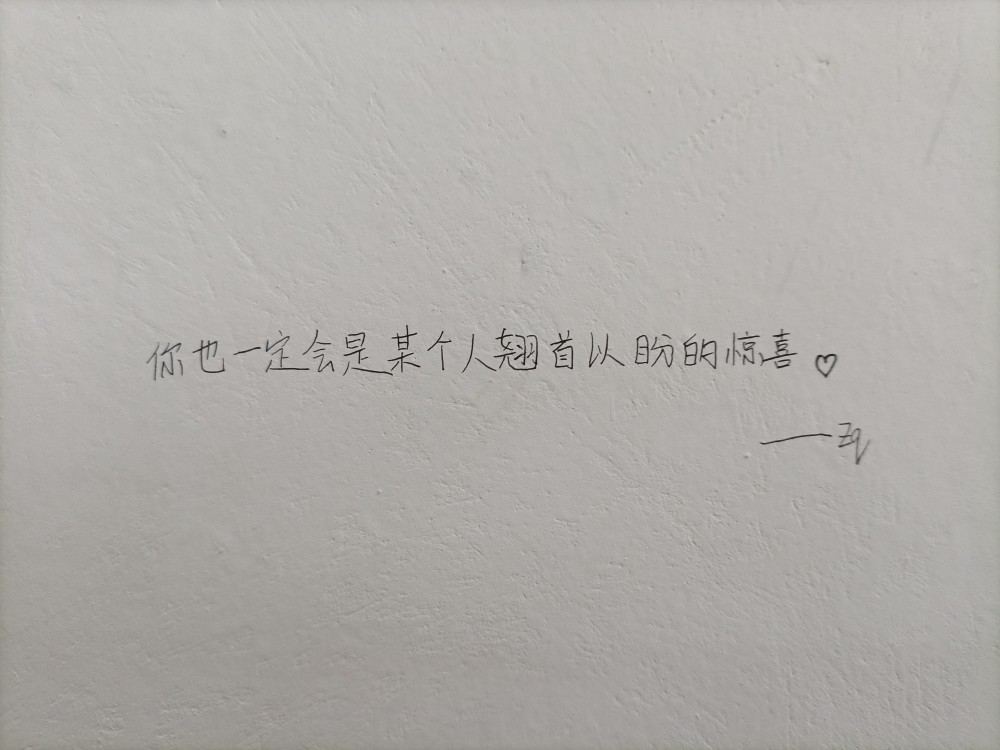 你也一定会是某个人翘首以盼的惊喜♡
——Zq